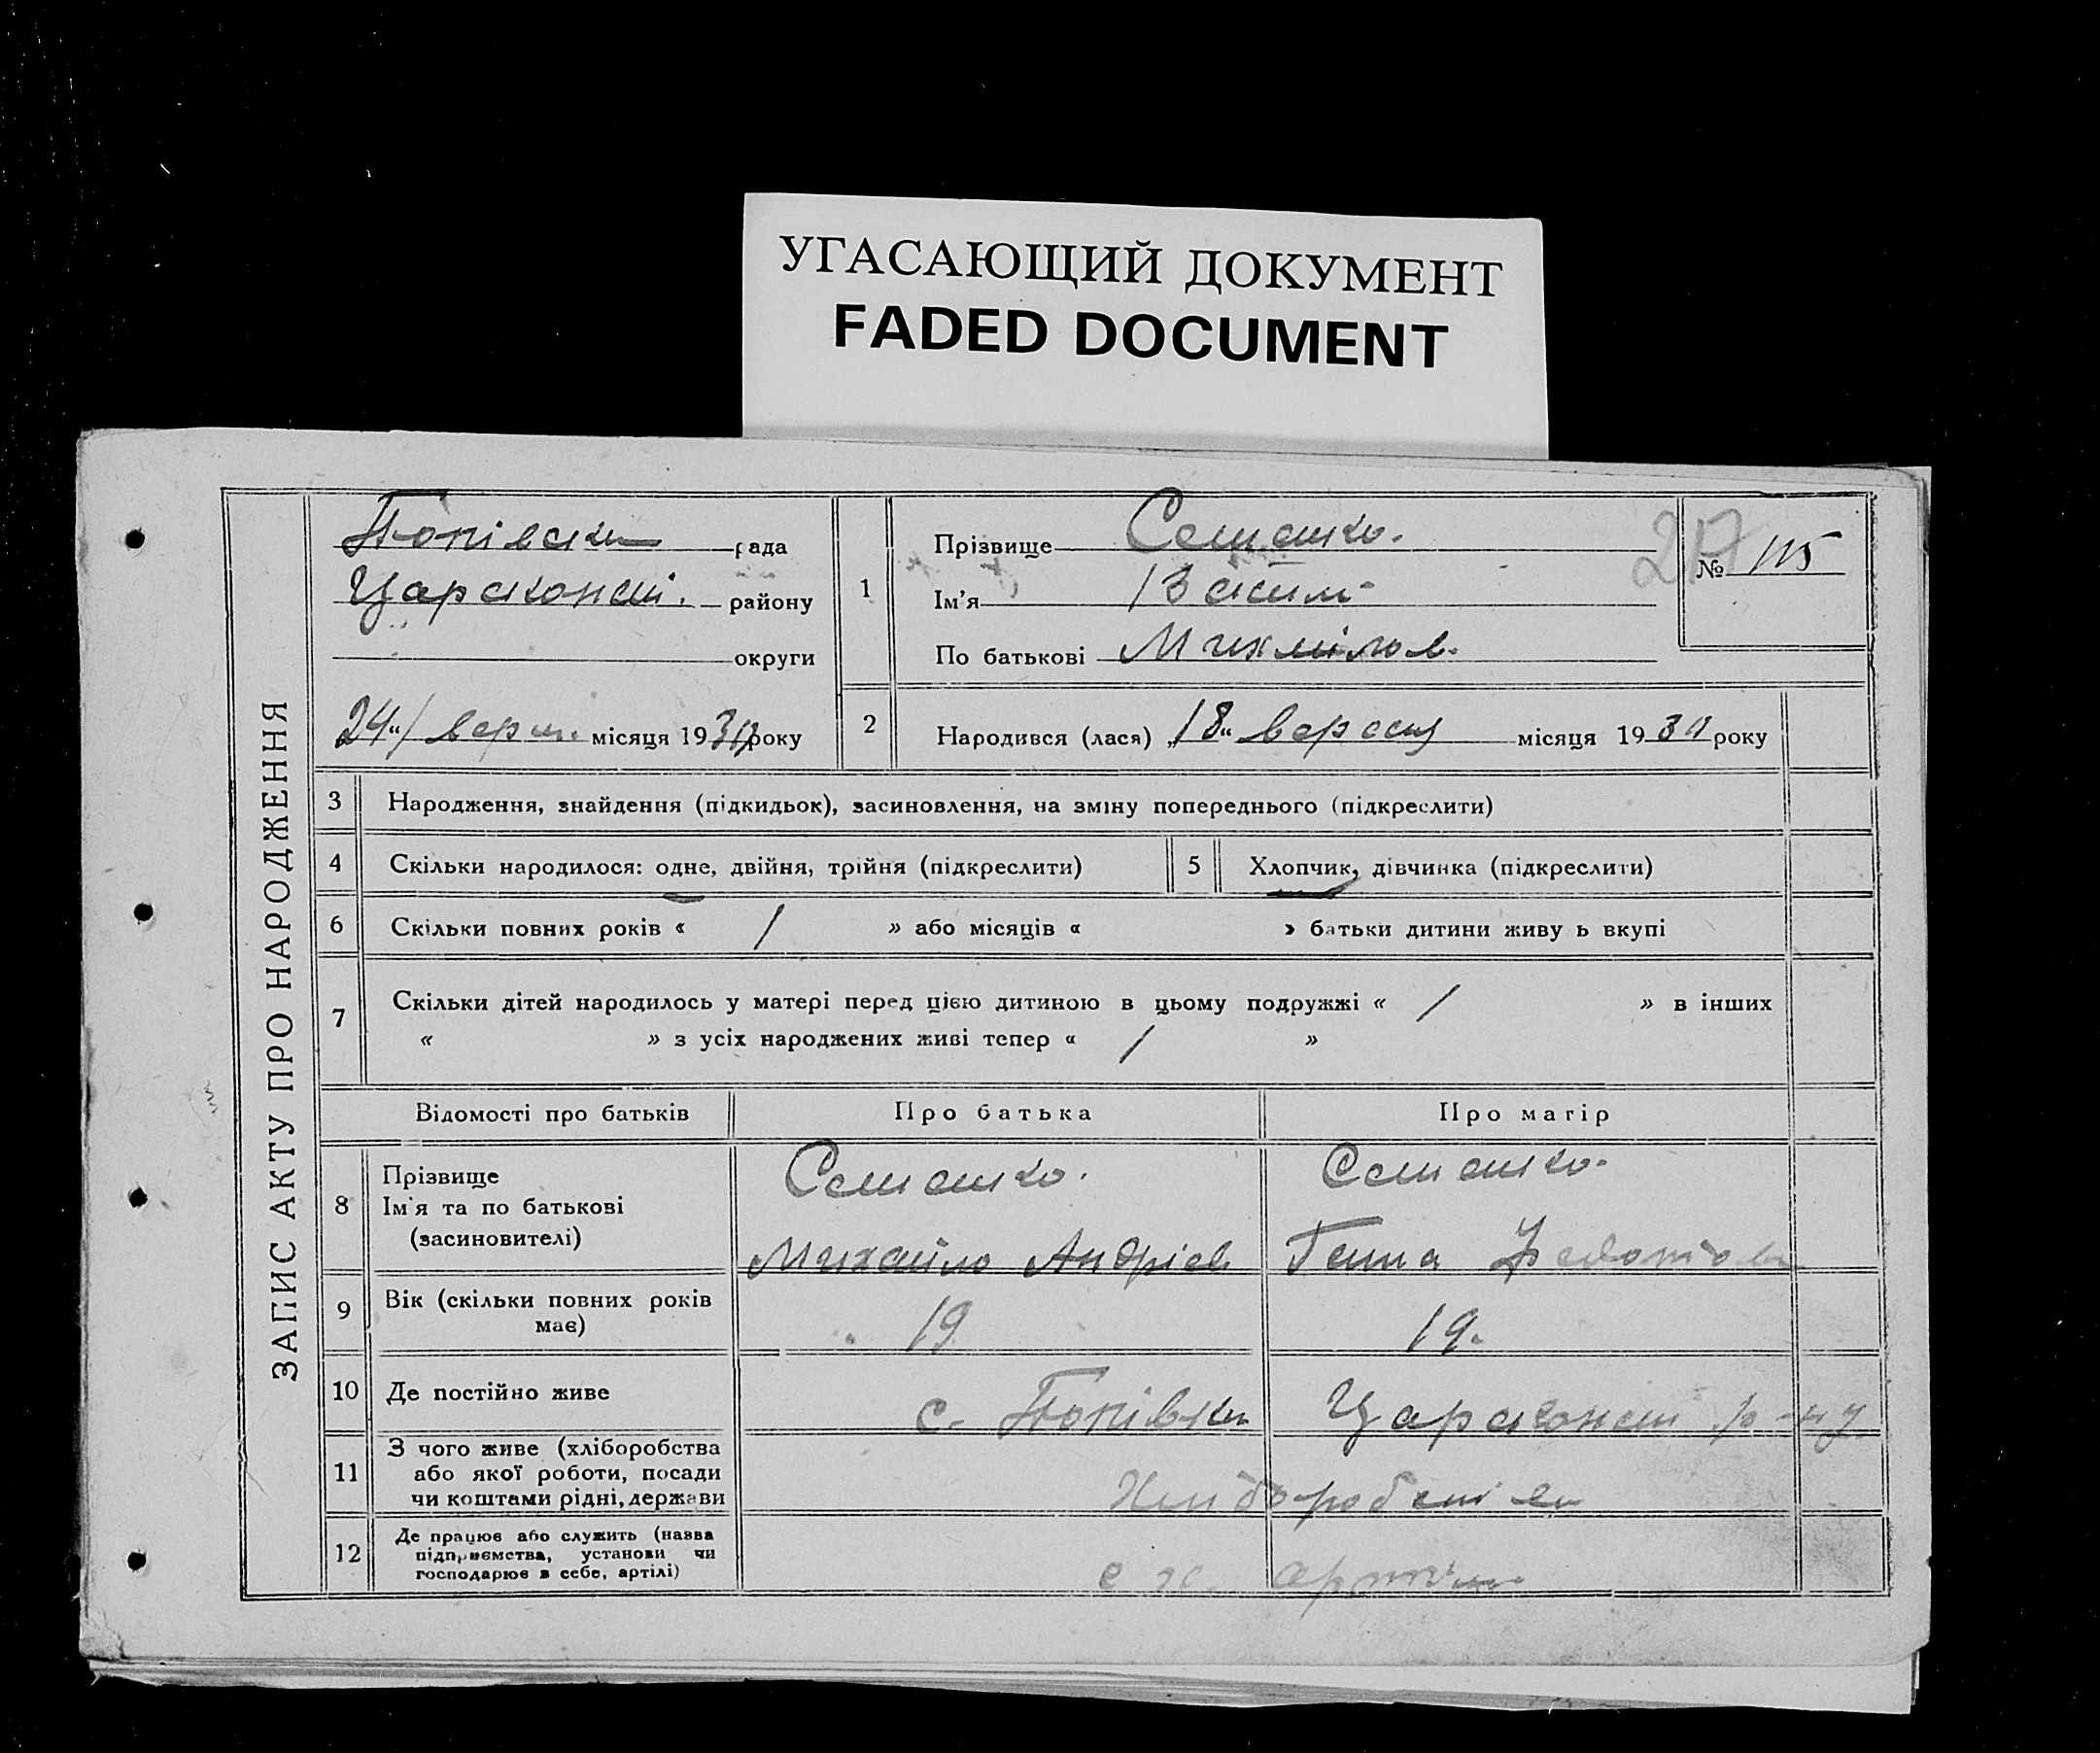 УГАСАЮЩИЙ ДОКУМЕНТ
FADED DOCUMENT
ЗАПИС АКТУ ПРО НАРОДЖЕННЯ
Попівська рада
району
округи
24 верес. місяця 1930 року
1
Прізвище
Ім'я
По батькові Михайлов.
217
№ 115
2
Народився (лася) „18“ вересня місяця 1930 року
3 Народження, знайдення (підкидьок), засиновлення, на зміну попереднього (підкреслити)
4 Скільки народилося: одне, двійня, трійня (підкреслити)
5 Хлопчик, дівчинка (підкреслити)
6 Скільки повних років « / » або місяців « » батьки дитини живуть вкупі
7 Скільки дітей народилось у матері перед цією дитиною в цьому подружжі « / » в інших
« » з усіх народжених живі тепер « / »
Відомості про батьків
Про батька
Про матір
8
Прізвище
Ім'я та по батькові
(засиновителі)
Михайло Андріев
Ганна
9 Вік (скільки повних років має)
19
19.
10 Де постійно живе
с. Попівка
р-ну
11
З чого живе (хліборобства
або якої роботи, посади
чи коштами рідні, держави
12
Де працює або служить (назва
підприємства, установи чи
господарює в себе, артілі)